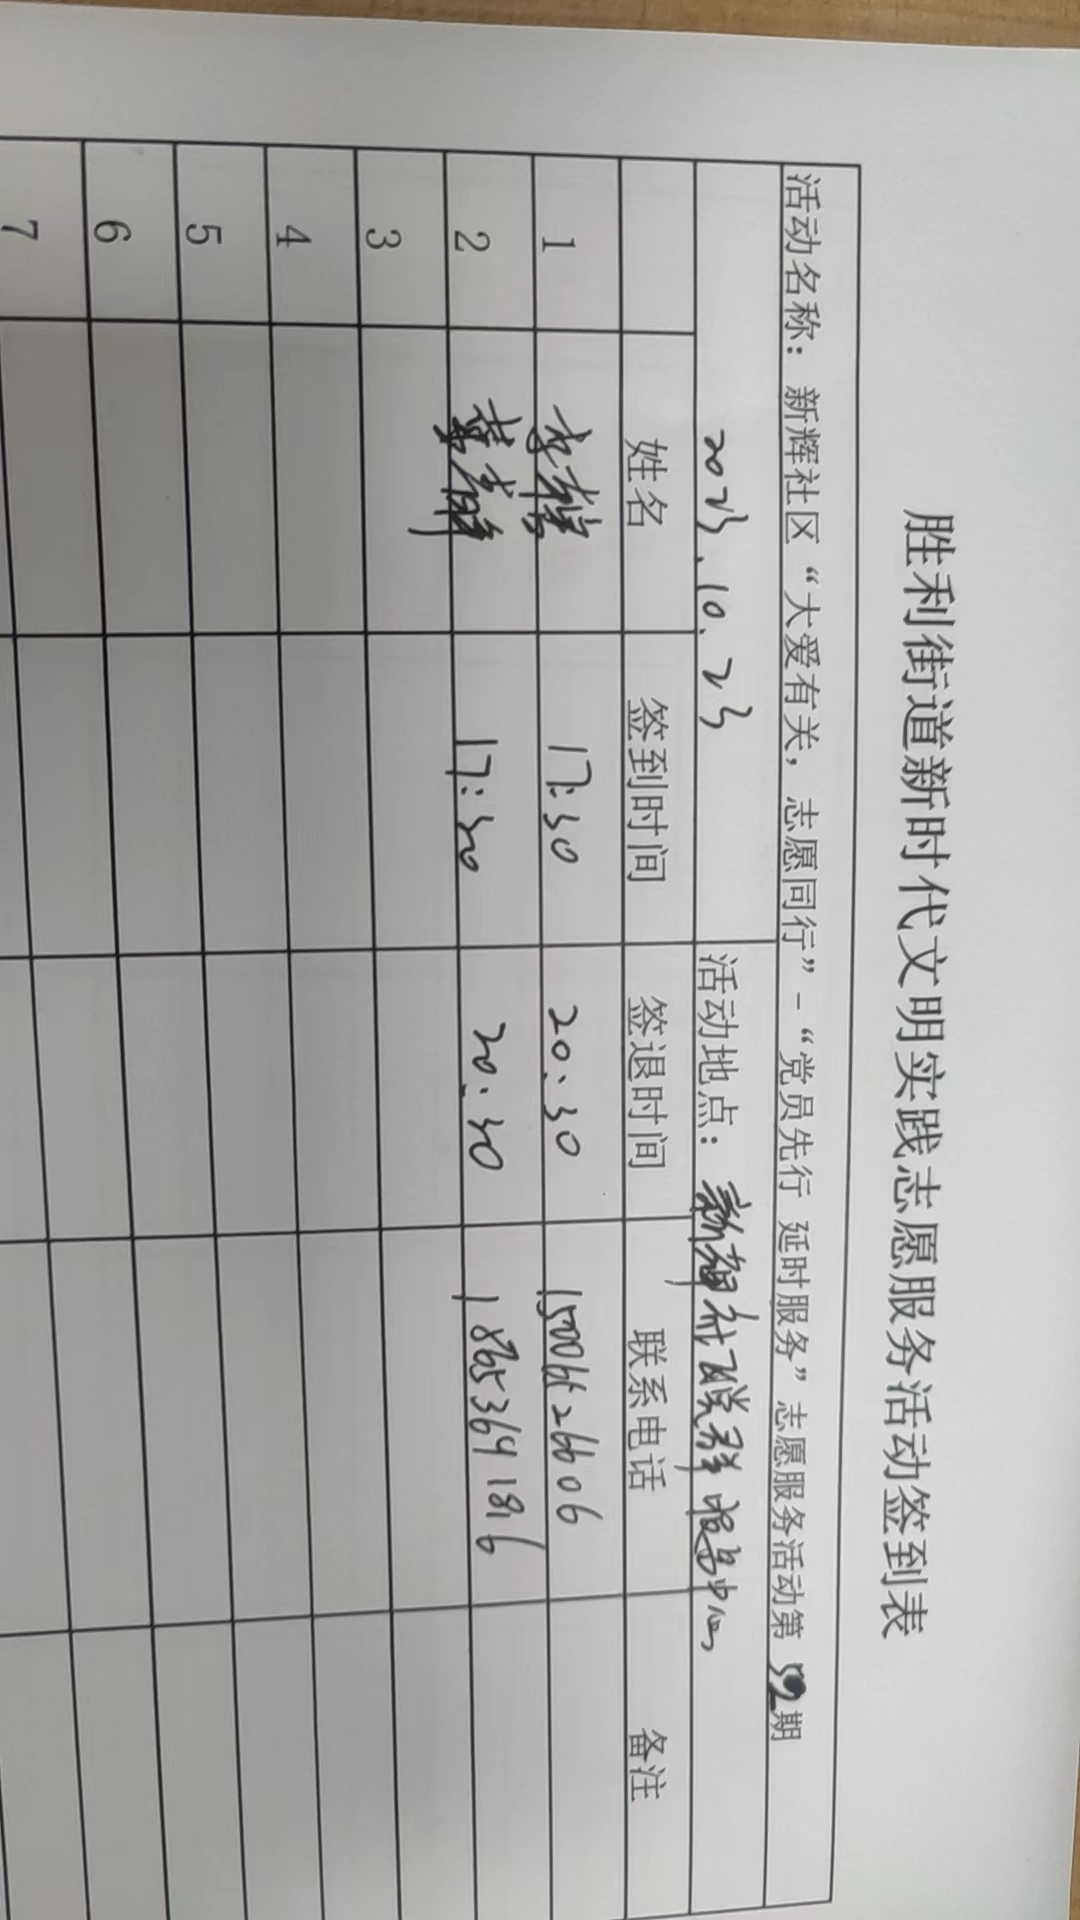 胜利街道新时代文明实践志愿服务活动签到表
活动名称：新辉社区“大爱有关，志愿同行”-“党员先行 延时服务”志愿服务活动第 期
2023.10.23 活动地点：新辉社区党群服务中心
姓名 签到时间 签退时间 联系电话 备注
1 17:30 20:30
2 17:30 20:30 18653641816
3
4
5
6
7